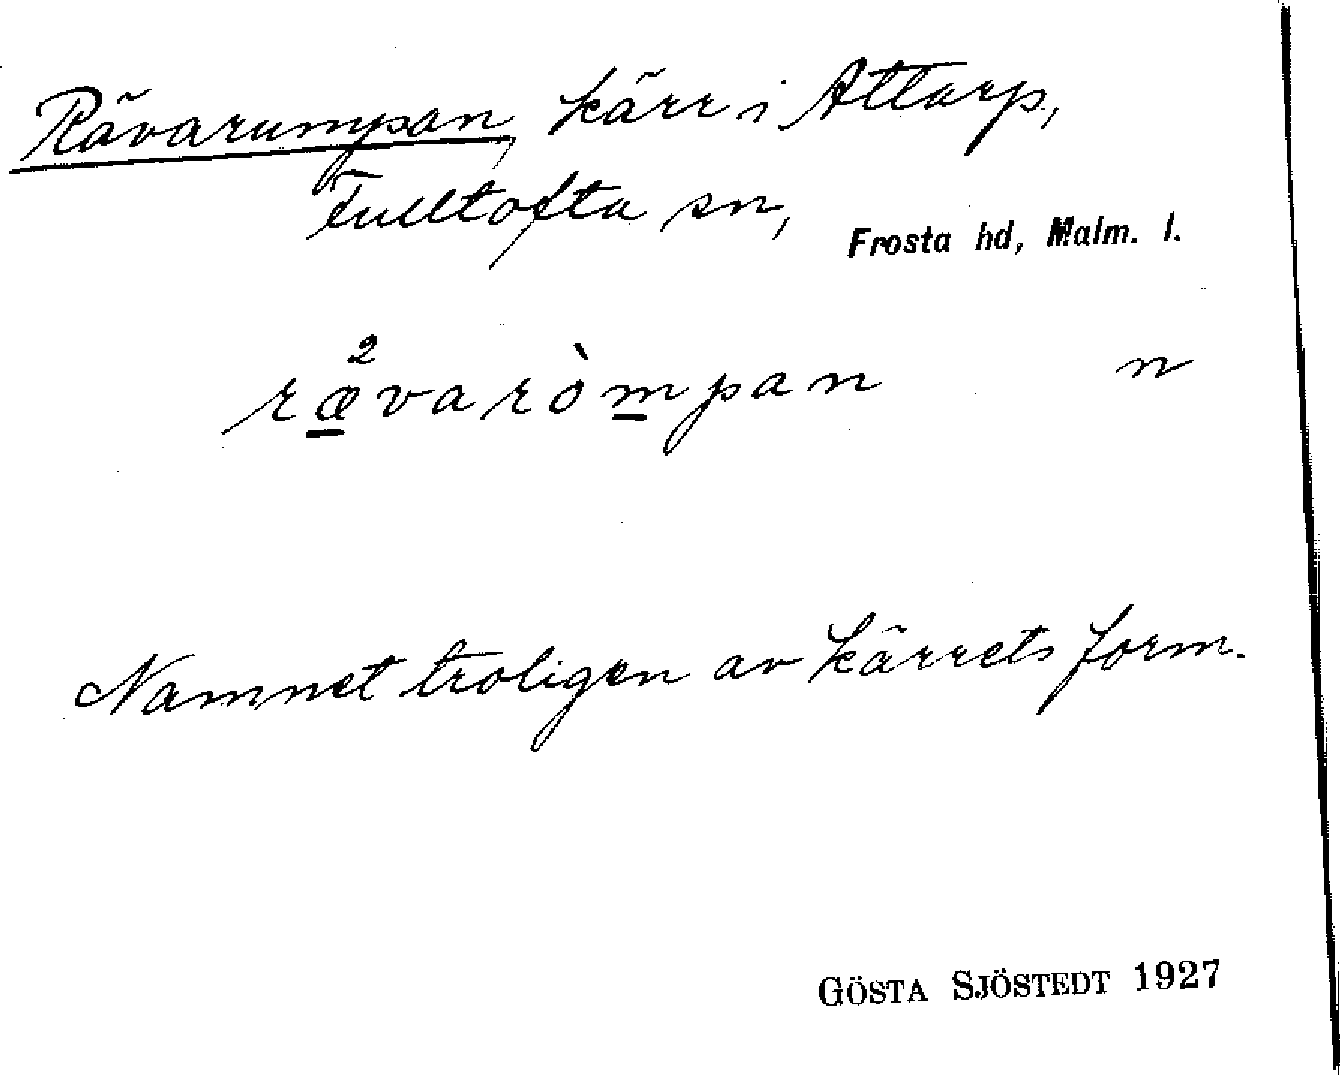 Rävarumpan, kärr i Attarp,
Fulltofta sn, Frosta hd, Malm. l.
ræ̲²varòm̲pan n
Namnet troligen av kärrets form.
GÖSTA SJÖSTEDT 1927